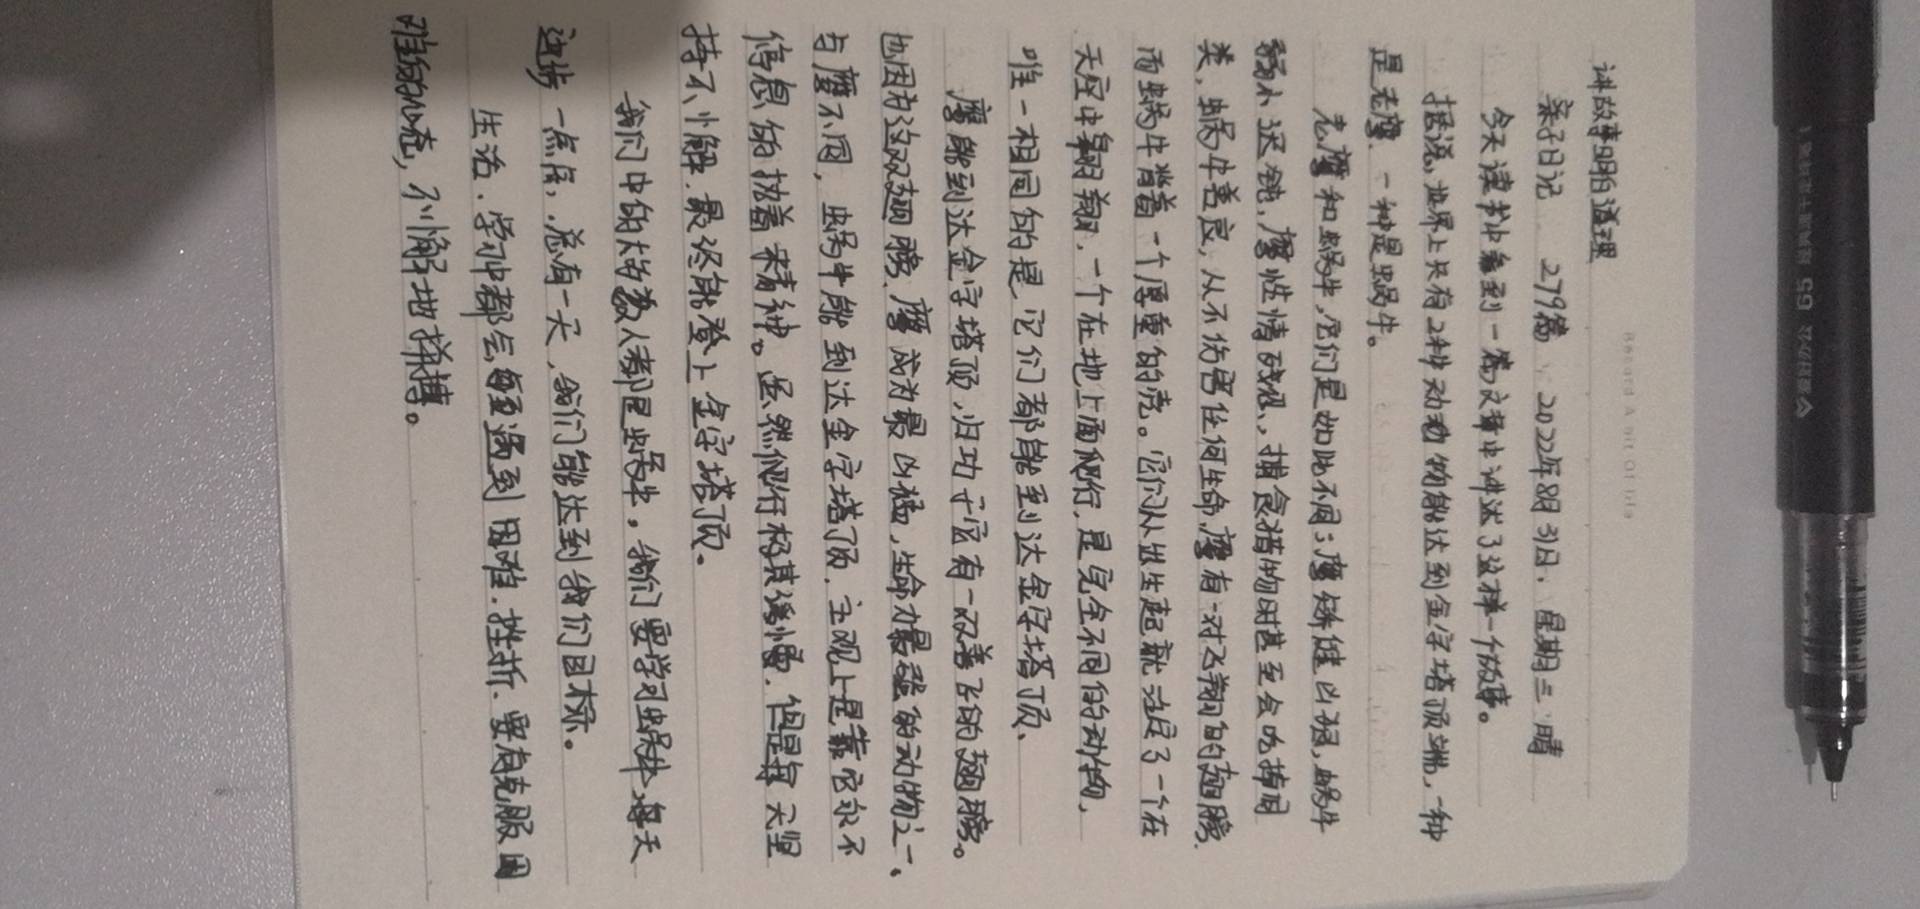 讲故事明道理
亲子日记 279篇 2022年8月31日. 星期三 晴
今天读书中看到一篇文章中讲述了这样一个故事。
据说,世界上只有2种动物能达到金字塔顶端,一种
是老鹰.一种是蜗牛。
老鹰和蜗牛,它们是如此不同:鹰矫健凶狠,蜗牛
弱小迟钝.鹰性情残忍、捕食猎物时甚至会吃掉同
类,蜗牛善良,从不伤害任何生命.鹰有一对飞翔的翅膀.
而蜗牛背着一个厚重的壳。它们从出生起就注定了一个在
天空中翱翔.一个在地上面爬行,是完全不同的动物,
唯一相同的是.它们都能到达金字塔顶.
鹰能到达金字塔顶,归功于它有一双善飞的翅膀。
也因为这双翅膀.鹰成为最凶猛,生命力最强的动物之一.
与鹰不同,蜗牛能到达金字塔顶.主观上是靠它永不
停息的执着精神。虽然爬行极其缓慢.但是每天坚
持不懈.最终能登上金字塔顶.
我们中的大多数人都是蜗牛,我们要学习蜗牛,每天
进步一点点,总有一天,我们能达到我们目标。
生活.学习中都会遇到困难.挫折.要有克服困
难的心态,不懈地拼搏。
Record A bit Of life
G5